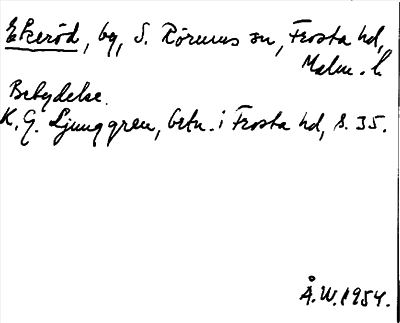 Ekeröd, by, S. Rörums sn, Frosta hd,
Malm. l.
Betydelse.
K. G. Ljunggren, betn. i Frosta hd, s. 35.
Å.W. 1954.